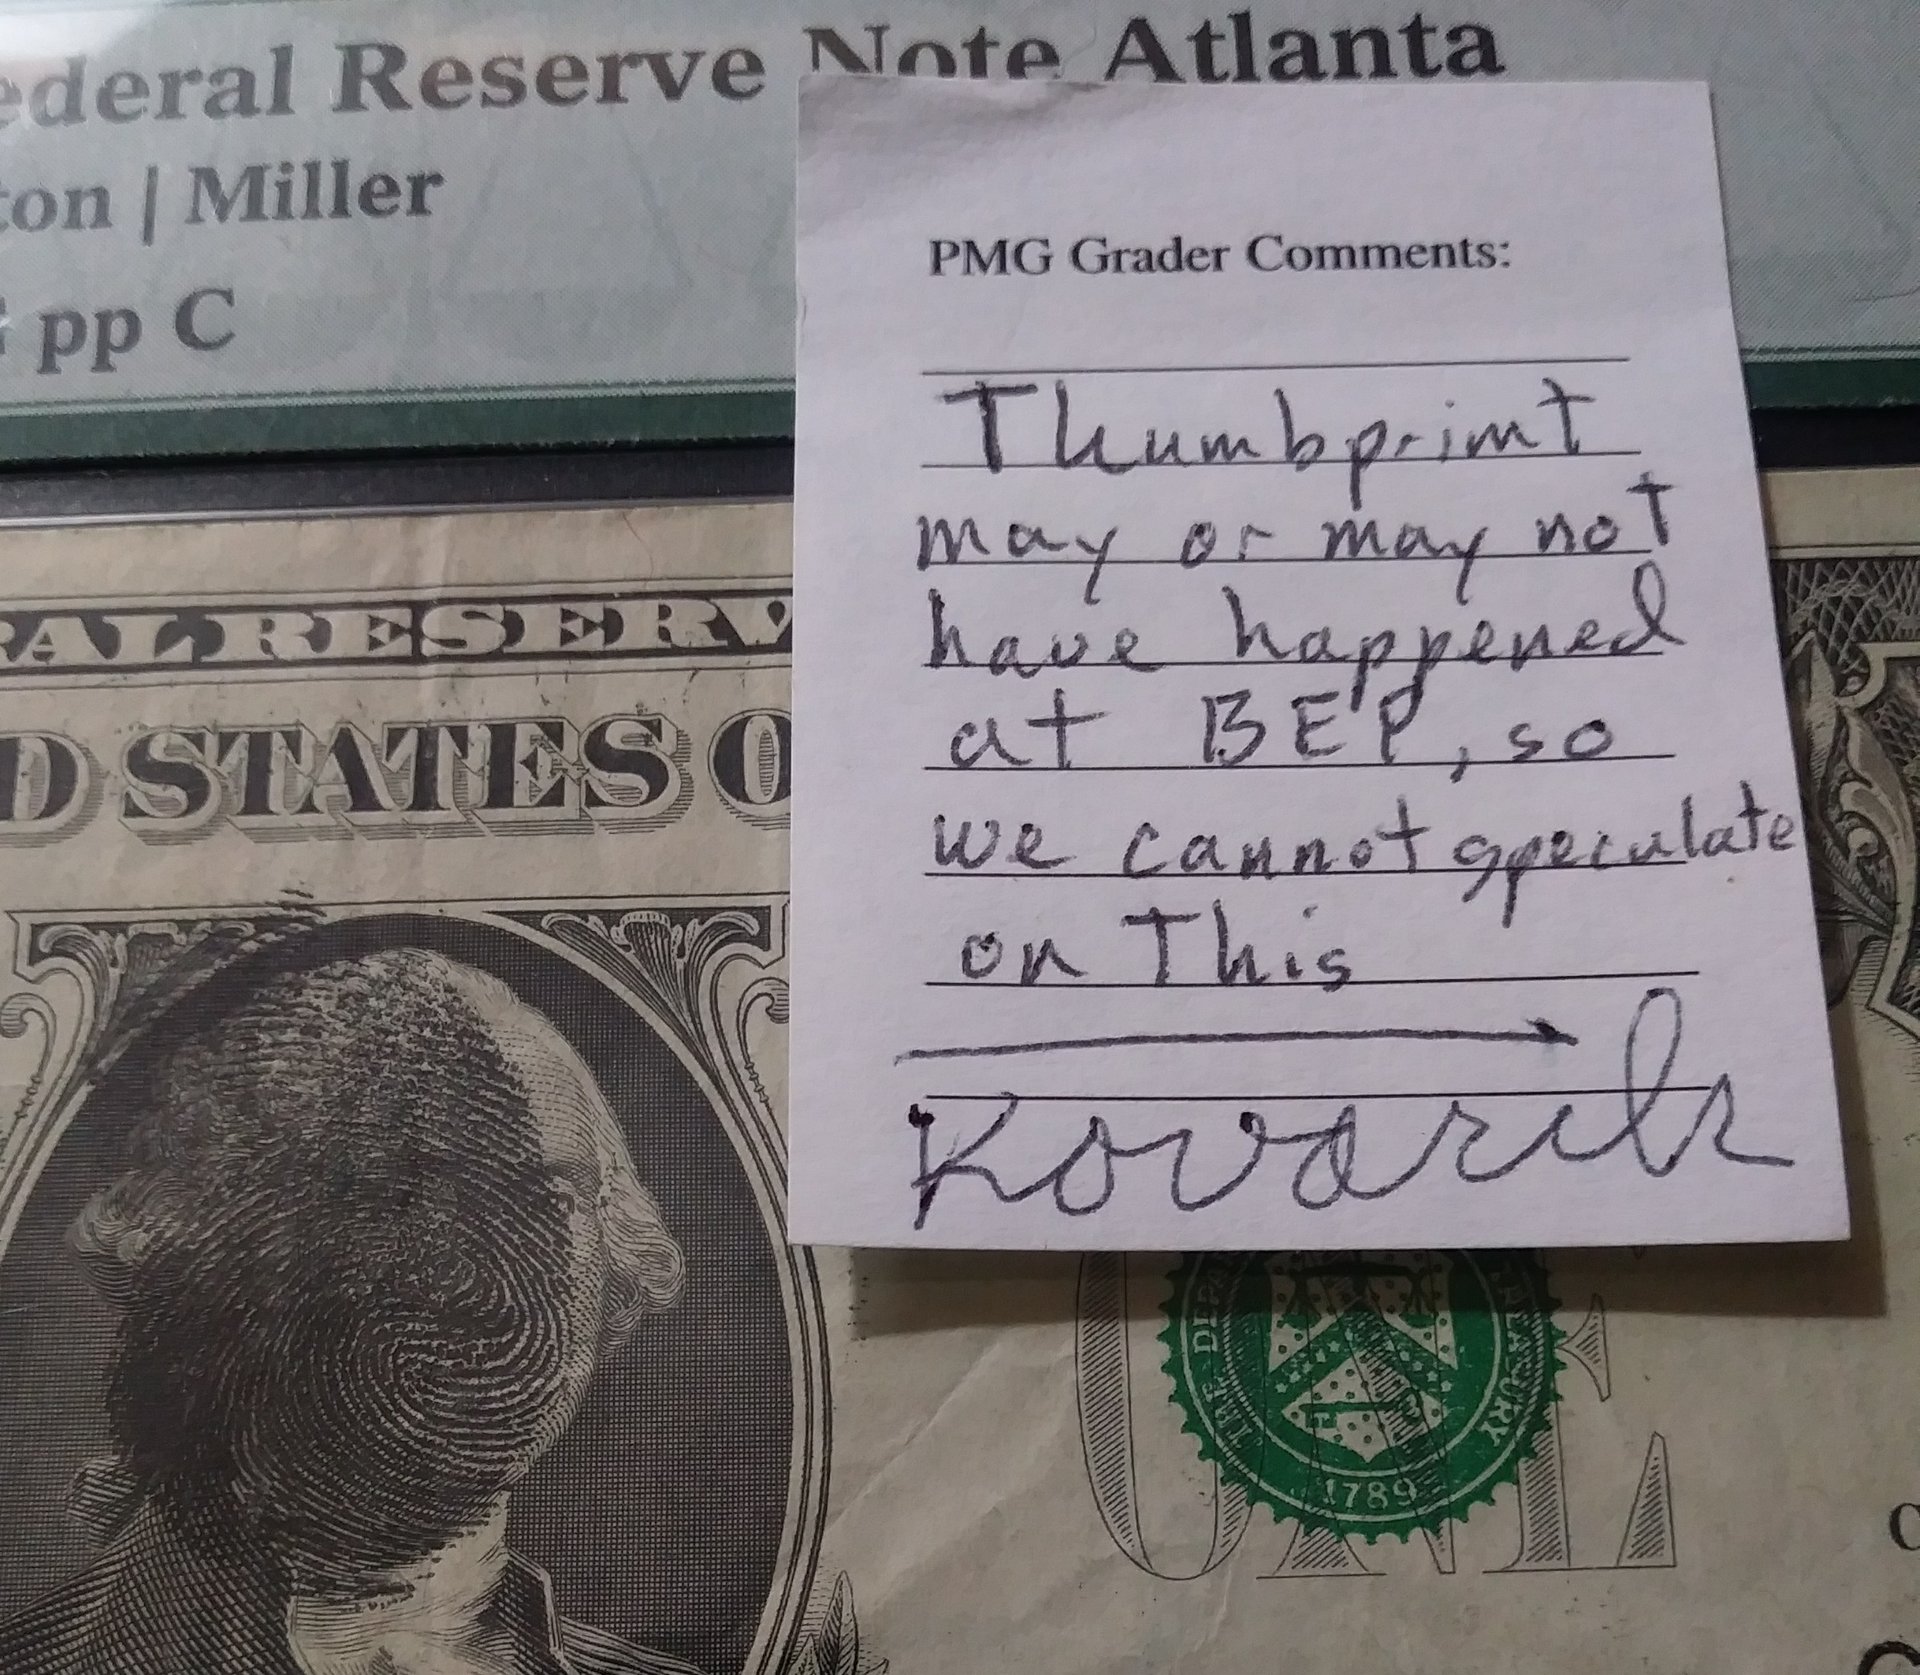 ederal Reserve Note Atlanta
ton | Miller
pp C
PMG Grader Comments:
Thumbprint
may or may not
have happened
at BEP, so
we cannot speculate
on This
Kovarik
RAL RESERV
D STATES O
ONE
1789